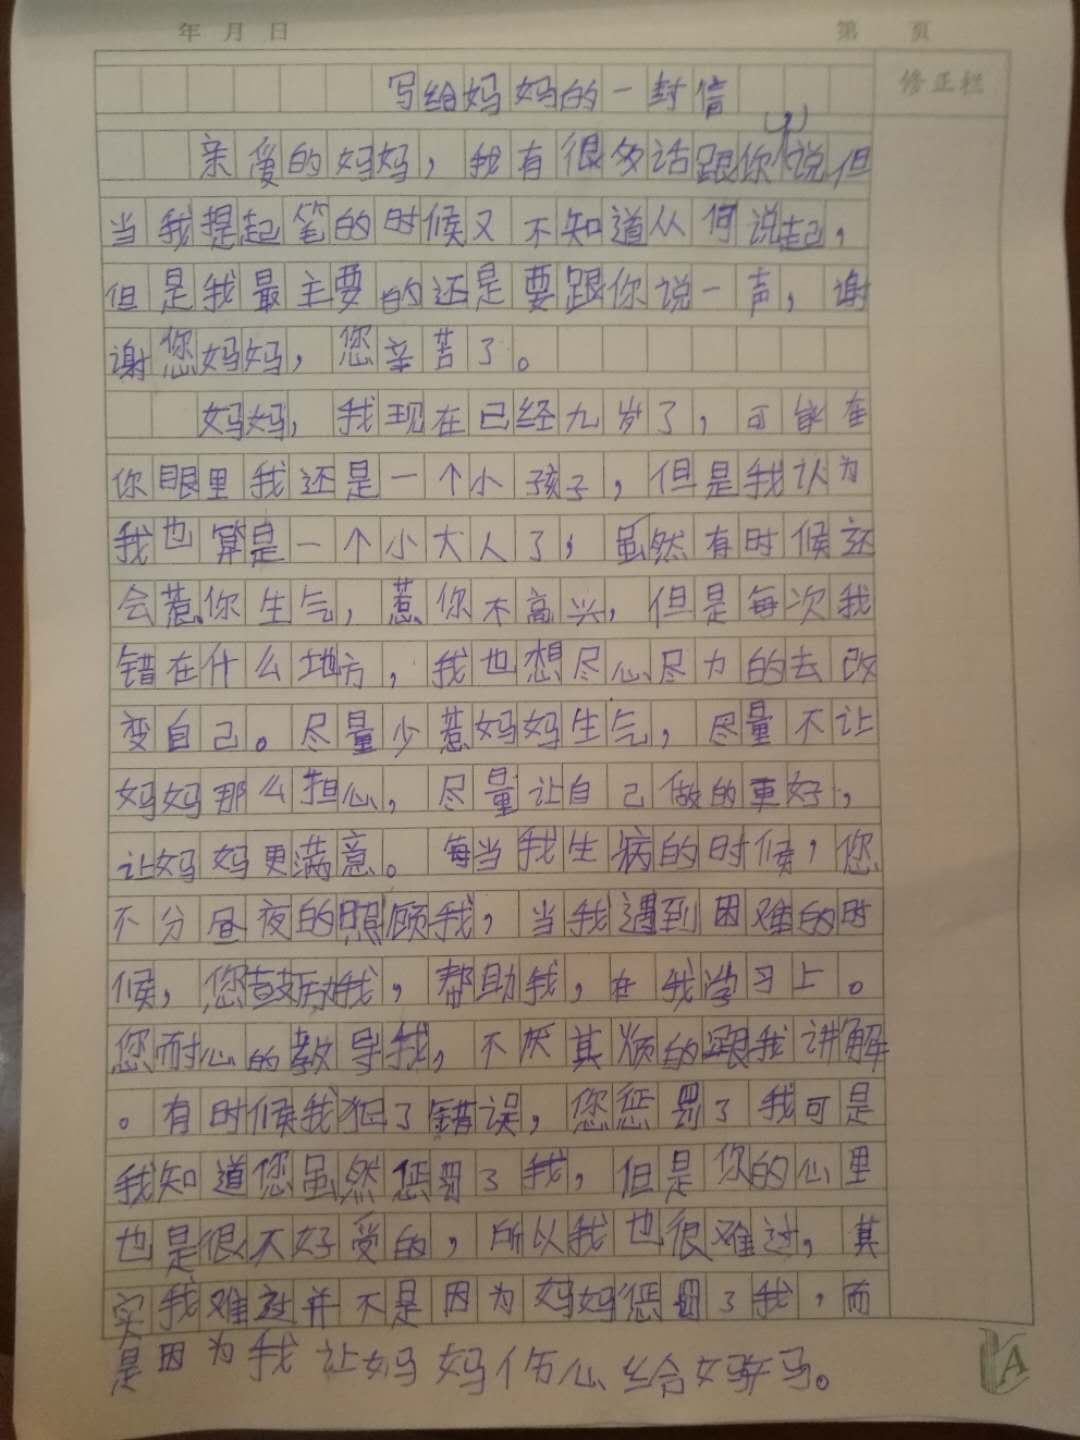 年 月 日 第 页
修正栏
写给妈妈的一封信
亲爱的妈妈，我有很多话跟你说，但
当我提起笔的时候又不知道从何说起，
但是我最主要的还是要跟你说一声，谢
谢您妈妈，您辛苦了。
妈妈，我现在已经九岁了，可能在
你眼里我还是一个小孩子，但是我认为
我也算是一个小大人了，虽然有时候还
会惹你生气，惹你不高兴，但是每次我
错在什么地方，我也想尽心尽力的去改
变自己。尽量少惹妈妈生气，尽量不让
妈妈那么担心，尽量让自己做的更好，
让妈妈更满意。每当我生病的时候，您
不分昼夜的照顾我，当我遇到困难的时
候，您鼓励我，帮助我，在我学习上。
您耐心的教导我，不厌其烦的跟我讲解
。有时候我犯了错误，您惩罚了我可是
我知道您虽然惩罚了我，但是你的心里
也是很不好受的，所以我也很难过，其
实我难过并不是因为妈妈惩罚了我，而
是因为我让妈妈伤心给妈妈。